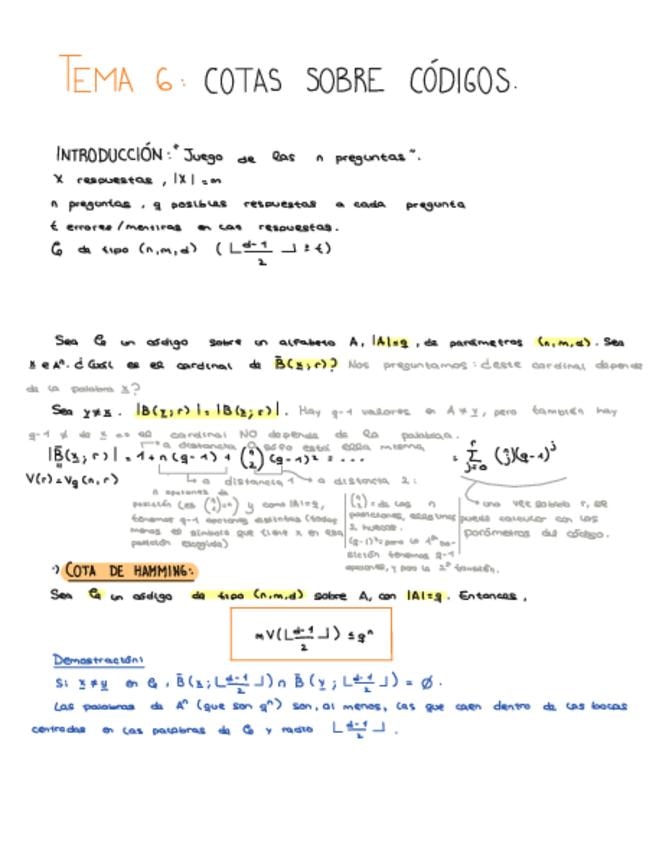 TEMA 6: COTAS SOBRE CÓDIGOS.
INTRODUCCIÓN: "Juego de las n preguntas".
X respuestas, |X| = m
n preguntas, q posibles respuestas a cada pregunta
t errores/mentiras en las respuestas.
C de tipo (n,m,d) (⌊d-1/2⌋ ≥ t)
Sea C un código sobre un alfabeto A, |A|=q, de parámetros (n,m,d). Sea
x ∈ Aⁿ. ¿Cuál es el cardinal de B̄(x;r)? Nos preguntamos: ¿este cardinal depende
de la palabra x?
Sea y≠x. |B(x;r)| = |B(y;r)|. Hay q-1 valores en A ≠ y, pero también hay
q-1 ≠ de x => el cardinal NO depende de la palabra.
a distancia 0 solo está ella misma
|B̄(x;r)| = 1 + n(q-1) + (n 2)(q-1)² + ... = Σ_{j=0}^{r} (n j)(q-1)^j
V(r) = Vq(n,r)
a distancia 1
a distancia 2:
n opciones de
posición (es (n 1)=n) y como |A|=q,
tenemos q-1 opciones distintas (todas
menos el símbolo que tiene x en esa
posición escogida)
(n 2) = de las n
posiciones, escogemos
2 huecos.
(q-1)²= para la 1ª po-
sición tenemos q-1
opciones, y para la 2ª también.
una vez sabido r, se
puede calcular con los
parámetros del código.
·) COTA DE HAMMING:
Sea C un código de tipo (n,m,d) sobre A, con |A|=q. Entonces,
mV(⌊d-1/2⌋) ≤ qⁿ
Demostración:
Si x≠y en C, B̄(x;⌊d-1/2⌋) ∩ B̄(y;⌊d-1/2⌋) = ∅.
Las palabras de Aⁿ (que son qⁿ) son, al menos, las que caen dentro de las bolas
centradas en las palabras de C y radio ⌊d-1/2⌋.